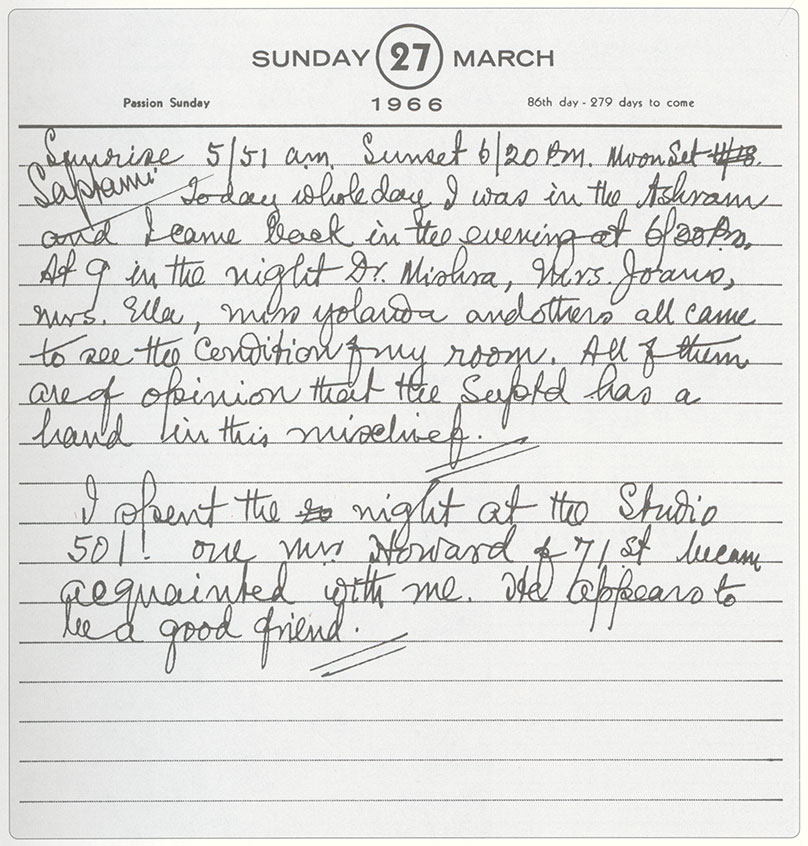 SUNDAY 27 MARCH
Passion Sunday 1966 86th day - 279 days to come
Sunrise 5/51 am. Sunset 6/20 Pm. Moon Set
Saptami Today whole day I was in the Ashram
and I came back in the evening at 6/20 Pm.
At 9 in the night Dr. Mishra, Mrs. Joans,
mrs. Ella, miss yolanda and others all came
to see the Condition of my room. All of them
are of opinion that the Suptd has a
hand in this mischief.
I spent the night at the Studio
501! one mr Howard of 71 st becam
acquainted with me. He appears to
be a good friend.